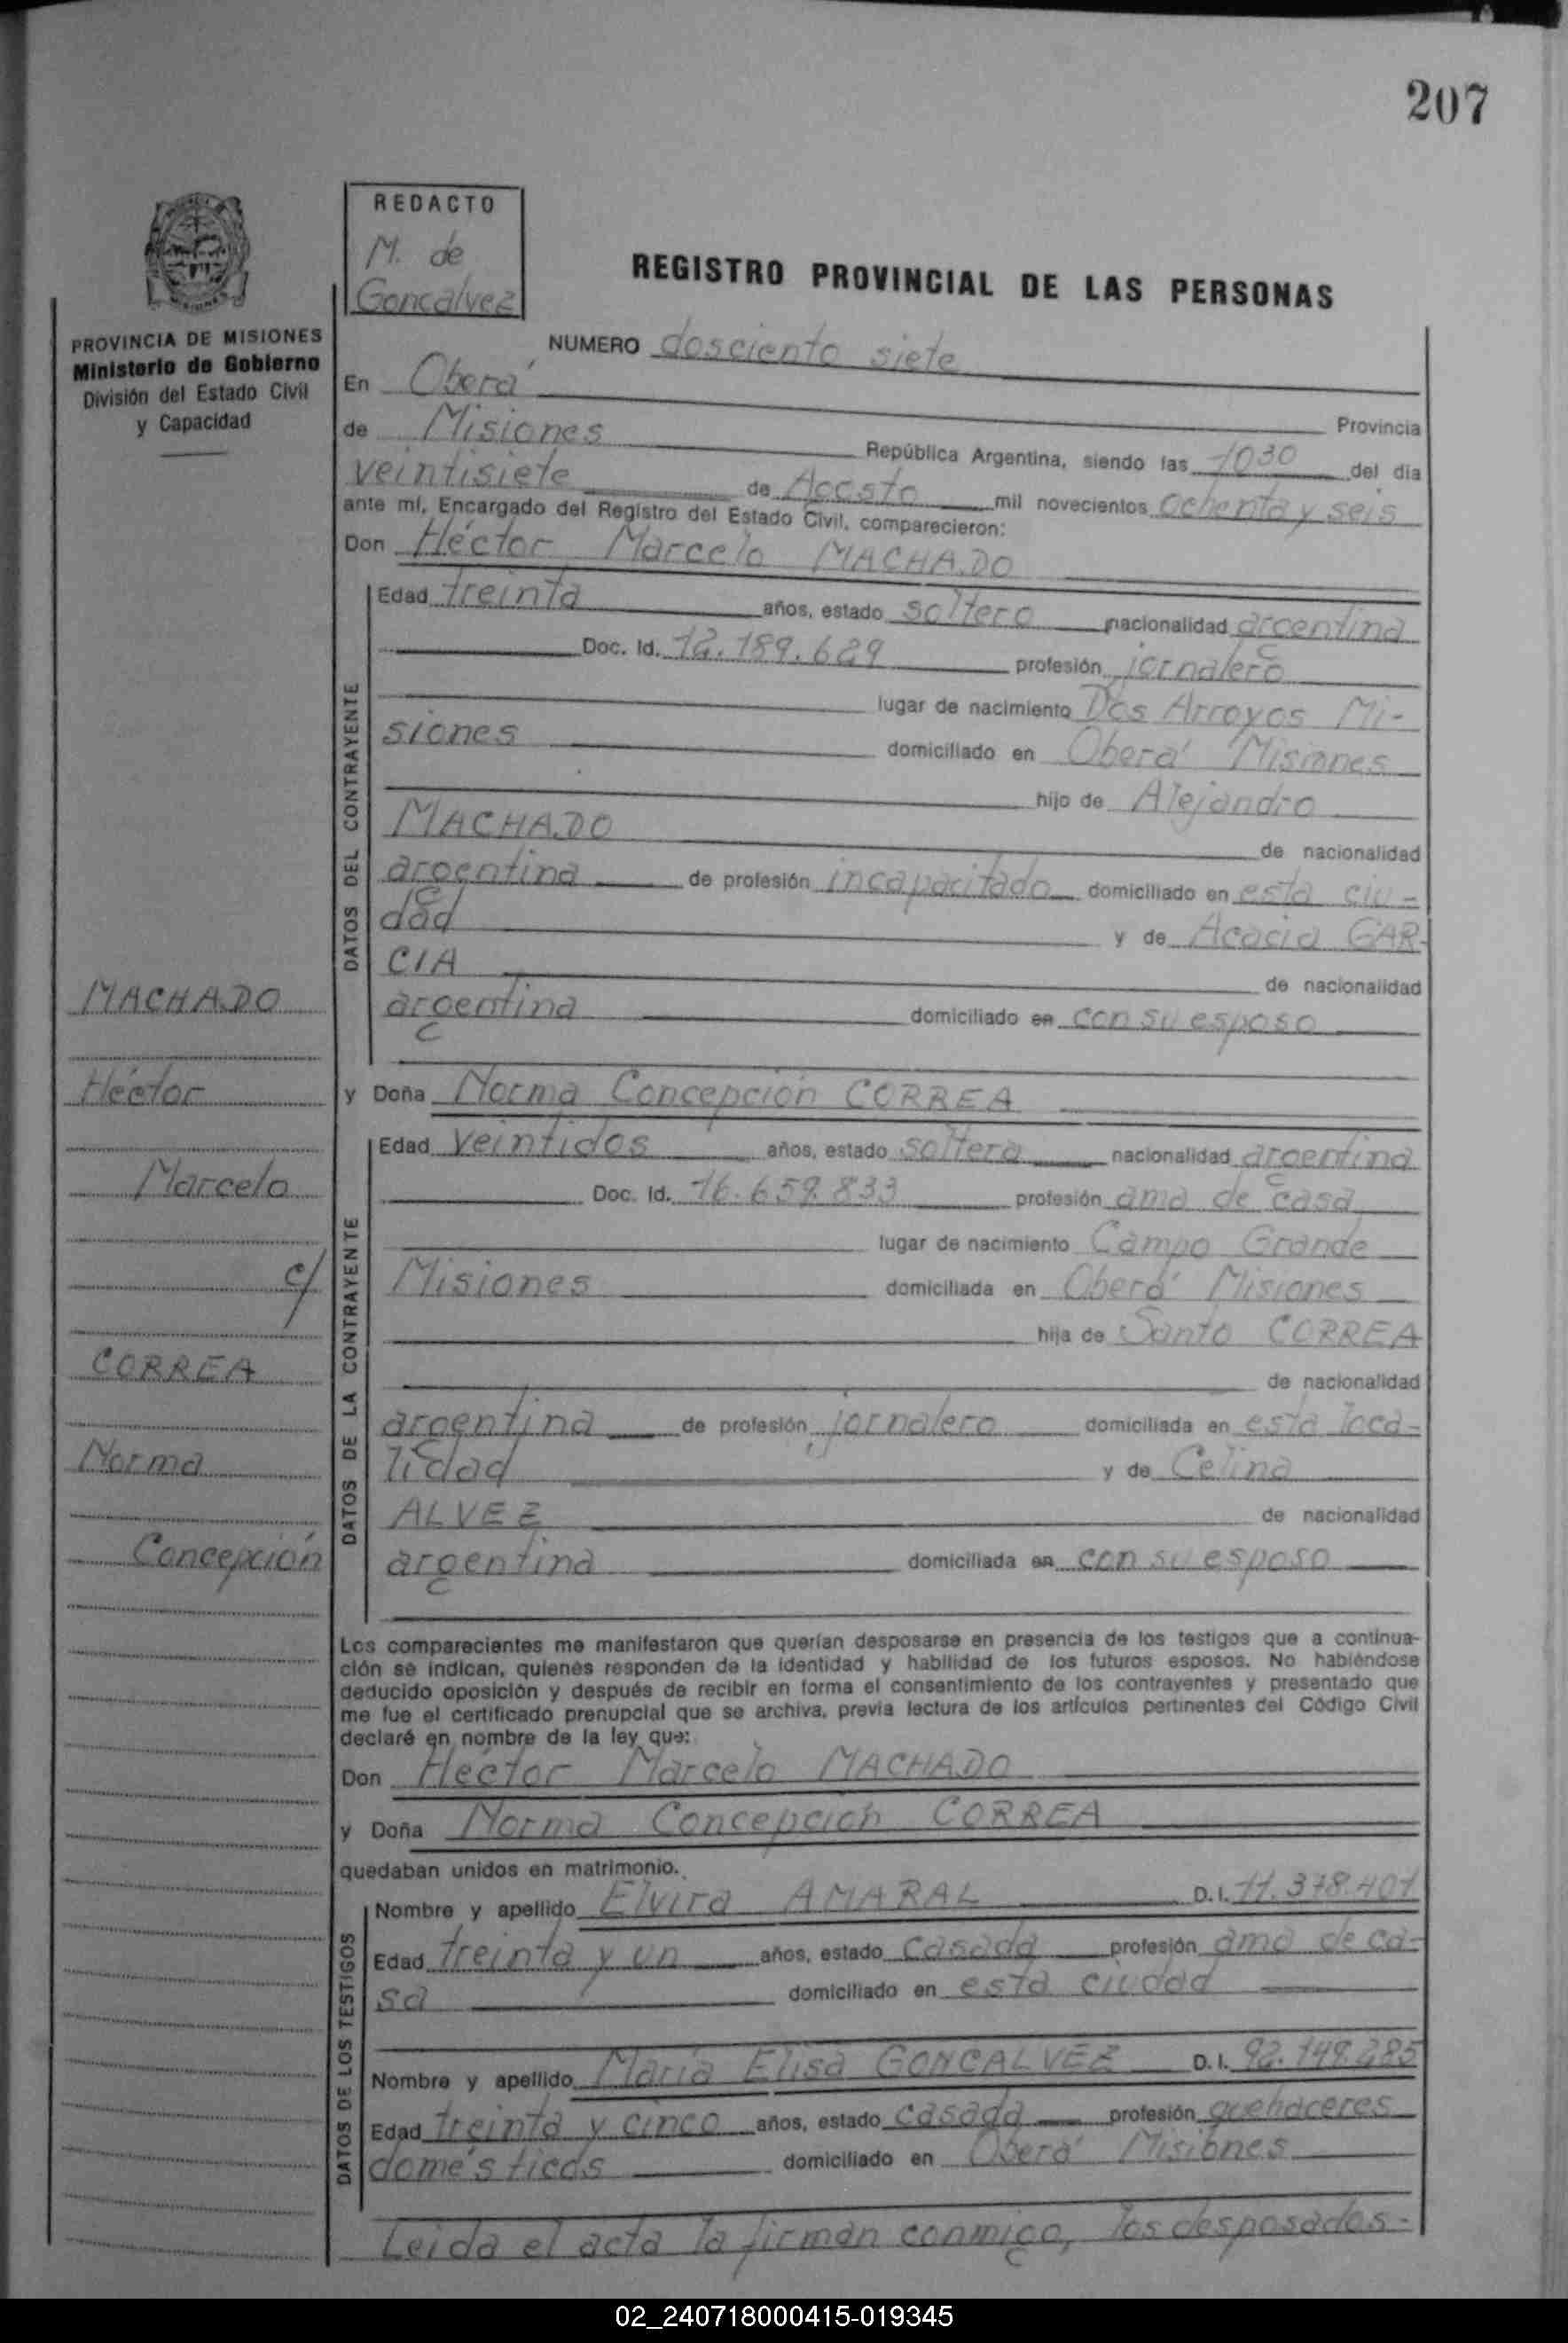 207
REDACTO
M. de
Goncalvez
REGISTRO PROVINCIAL DE LAS PERSONAS
PROVINCIA DE MISIONES
Ministerio de Gobierno
División del Estado Civil
y Capacidad
NUMERO dosciento siete
En Oberá Provincia
de Misiones República Argentina, siendo las 1030 del día
veintisiete de Agosto mil novecientos ochenta y seis
ante mí, Encargado del Registro del Estado Civil, comparecieron:
Don Héctor Marcelo MACHADO
DATOS DEL CONTRAYENTE
Edad treinta años, estado soltero nacionalidad argentina
Doc. Id. 12.189.629 profesión jornalero
lugar de nacimiento Dos Arroyos Mi-
siones domiciliado en Oberá Misiones
hijo de Alejandro
MACHADO de nacionalidad
argentina de profesión incapacitado domiciliado en esta ciu-
dad y de Acacia GAR-
CIA de nacionalidad
argentina domiciliado en con su esposo
MACHADO
Héctor
Marcelo
c/
CORREA
Norma
Concepción
y Doña Norma Concepción CORREA
DATOS DE LA CONTRAYENTE
Edad veintidos años, estado soltera nacionalidad argentina
Doc. Id. 16.659.833 profesión ama de casa
lugar de nacimiento Campo Grande
Misiones domiciliada en Oberá Misiones
hija de Santo CORREA
de nacionalidad
argentina de profesión jornalero domiciliada en esta loca-
lidad y de Celina
ALVEZ de nacionalidad
argentina domiciliada en con su esposo
Los comparecientes me manifestaron que querían desposarse en presencia de los testigos que a continua-
ción se indican, quienes responden de la identidad y habilidad de los futuros esposos. No habiéndose
deducido oposición y después de recibir en forma el consentimiento de los contrayentes y presentado que
me fue el certificado prenupcial que se archiva, previa lectura de los artículos pertinentes del Código Civil
declaré en nombre de la ley que:
Don Héctor Marcelo MACHADO
y Doña Norma Concepción CORREA
quedaban unidos en matrimonio.
DATOS DE LOS TESTIGOS
Nombre y apellido Elvira AMARAL D.I. 11.378.401
Edad treinta y un años, estado casada profesión ama de ca-
sa domiciliado en esta ciudad
Nombre y apellido María Elisa GONCALVEZ D.I. 92.149.285
Edad treinta y cinco años, estado casada profesión quehaceres
domésticos domiciliado en Oberá Misiones
Leida el acta la firman conmigo, los desposados-
02_240718000415-019345